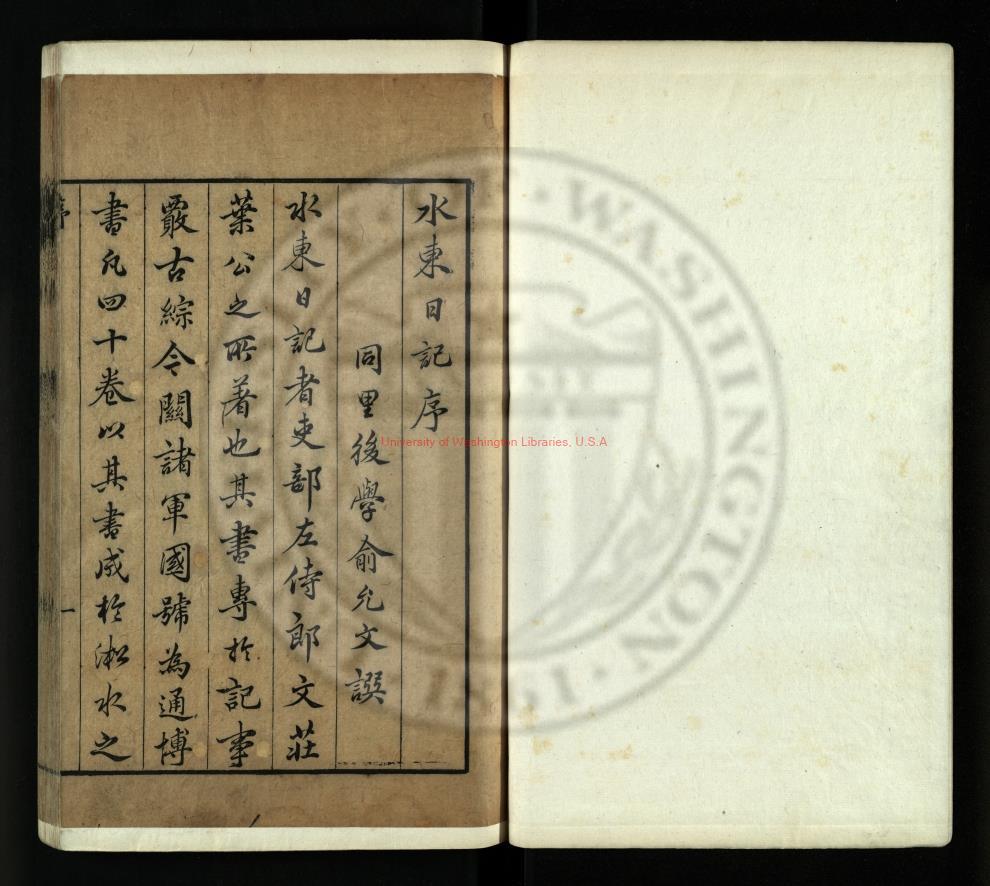 水東日記序
同里後學俞允文譔
水東日記者吏部左侍郎文莊
葉公之所著也其書專於記事
覈古綜今關諸軍國號為通博
書凡四十卷以其書成於淞水之
序
一
University of Washington Libraries, U.S.A
WASHINGTON
1861